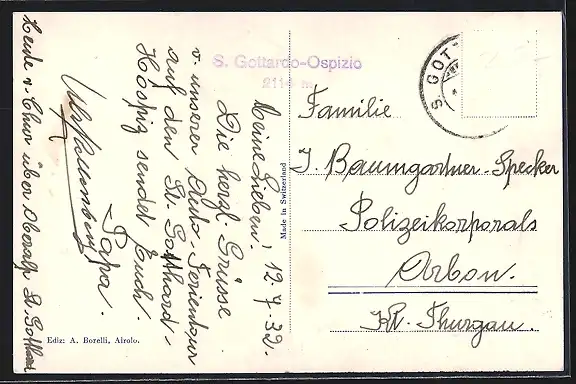 S. Gottardo-Ospizio
2114 m
Meine Lieben! 12.7.32.
Die herzl. Grüsse
v. unserer Auto Ferientour
auf den St. Gotthard-
Hospiz sendet Euch
Papa.
Heute v. Chur über Oberalp St. Gotthard
Ediz: A. Borelli, Airolo.
Made in Switzerland
S. GOT
Familie
J. Baumgartner-Specker
Polizeikorporals
Arbon.
Kt. Thurgau.